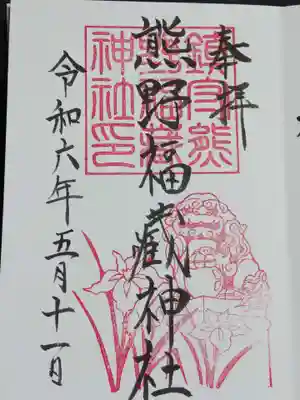 奉拝
鎮守熊
野福蔵
神社印
熊野福蔵神社
令和六年五月十一日